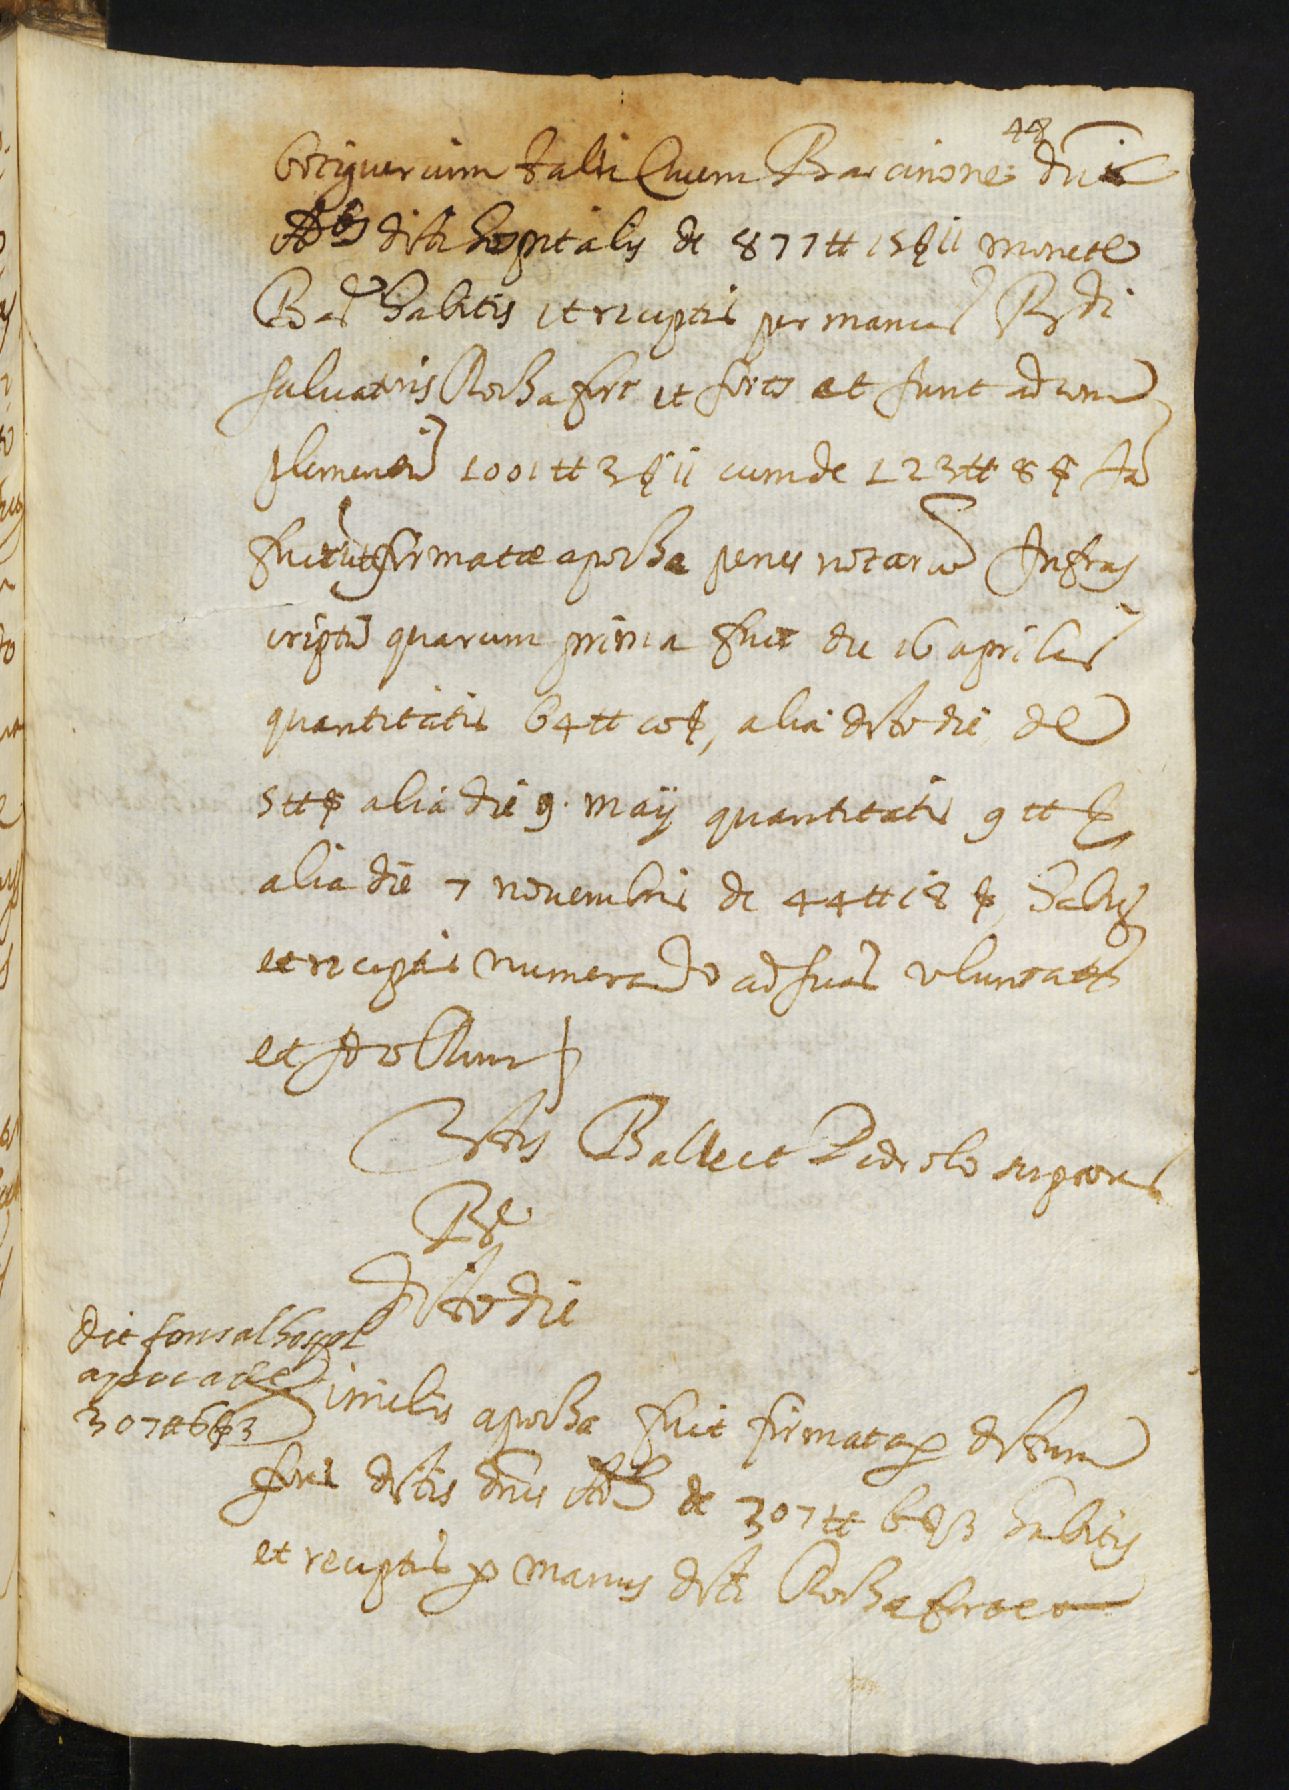 48
botiguerium talu Civem Barcinone dnis
Adbs dicti hospitalis de 877 tt 15 ß 11 monete
Bar habitis et receptis per manus Rdi
Salvatoris Rochafort et forts et sunt ad com
plementū 1001 tt 3 ß 11 cum de 123 tt 8 ß Ja
fuerūt firmatæ apocha penes notariū Infras
criptū quarum prima fuit die 16 aprilis
quantitatis 64 tt 10 ß, alia dicto die de
5 tt ß alia die 9. maij quantitatis 9 tt ß
alia die 7 novembris de 44 tt 18 ß, habitis
et receptis numerando ad suas voluntates
et ideo Renun
testes Ballest Pedrolo super
Re
dicto die
dit fons al hospl
apoca de
307 tt 6 ß 3
Similis apocha fuit firmata p dictum
fons dictis dnis Adbs de 307 tt 6 ß 3 habitis
et receptis p manus dicti Rochafort et